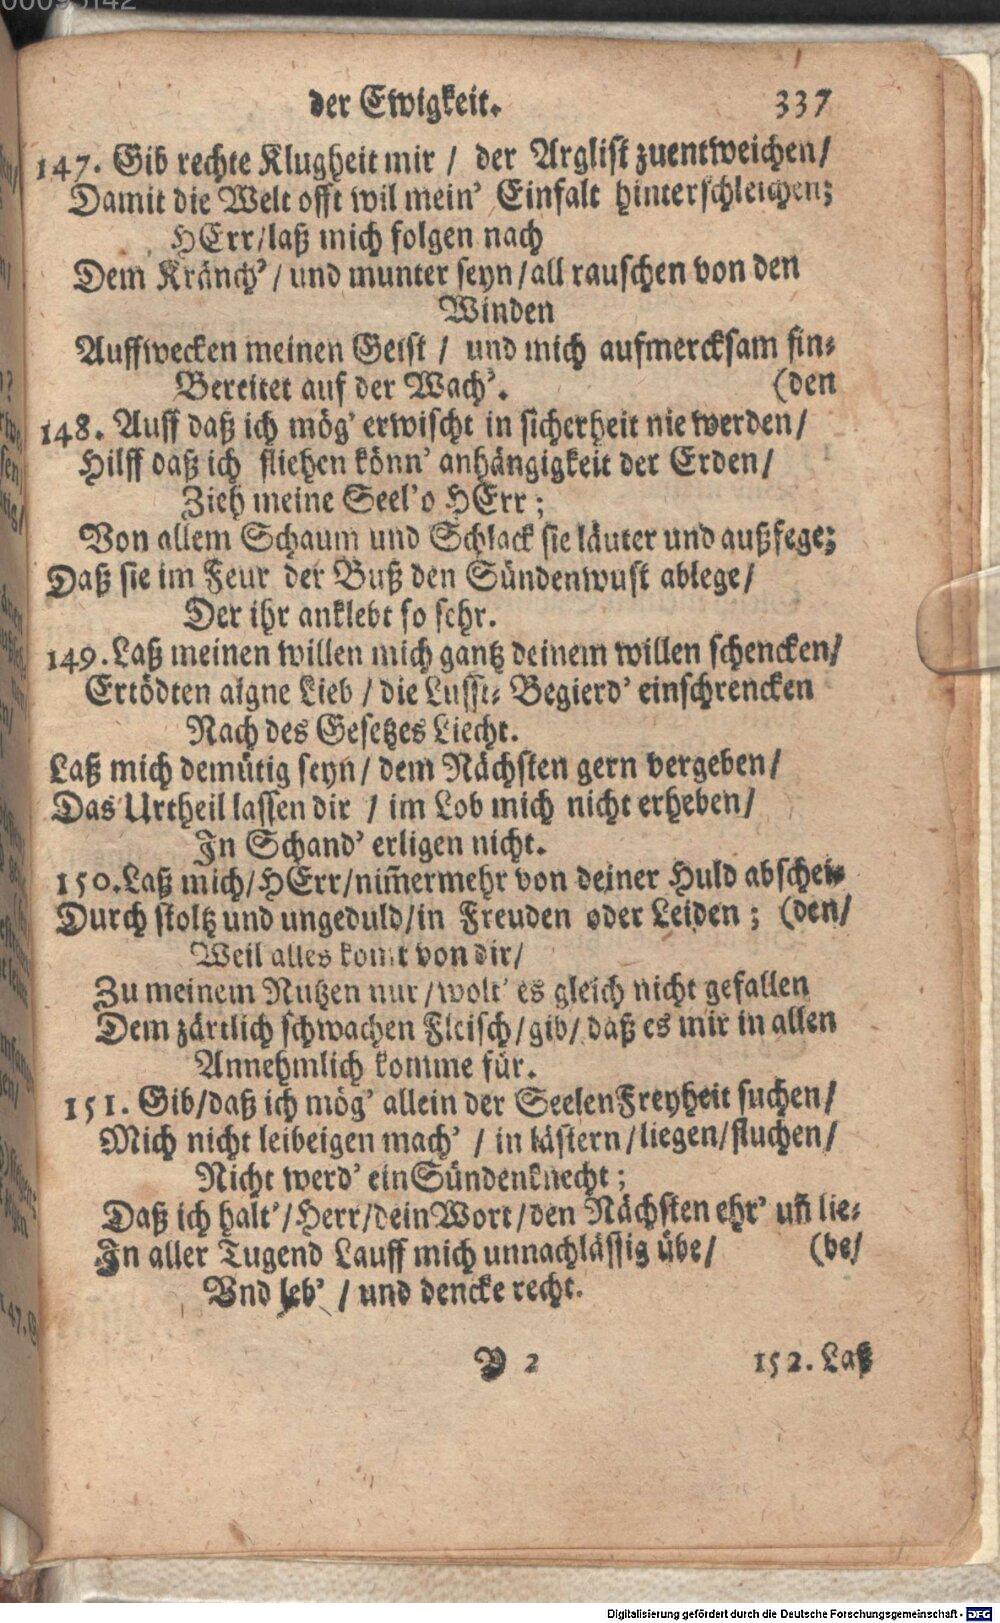 der Ewigkeit. 337
147. Gib rechte Klugheit mir / der Arglist zuentweichen/
Damit die Welt offt wil mein' Einfalt hinterschleichen;
HErr/laß mich folgen nach
Dem Kränch' / und munter seyn/all rauschen von den
Winden
Auffwecken meinen Geist / und mich aufmercksam fin-
Bereitet auf der Wach'. (den
148. Auff daß ich mög' erwischt in sicherheit nie werden/
Hilff daß ich fliehen könn' anhängigkeit der Erden/
Zieh meine Seel' o HErr;
Von allem Schaum und Schlack sie läuter und außfege;
Daß sie im Feur der Buß den Sündenwust ablege/
Der ihr anklebt so sehr.
149. Laß meinen willen mich gantz deinem willen schencken/
Ertödten aigne Lieb / die Lust- Begierd' einschrencken
Nach des Gesetzes Liecht.
Laß mich demütig seyn/ dem Nächsten gern vergeben/
Das Urtheil lassen dir / im Lob mich nicht erheben/
In Schand' erligen nicht.
150. Laß mich/HErr/nim̃ermehr von deiner Huld abschei-
Durch stoltz und ungeduld/in Freuden oder Leiden; (den/
Weil alles komt von dir/
Zu meinem Nutzen nur/wolt' es gleich nicht gefallen
Dem zärtlich schwachen Fleisch/gib/ daß es mir in allen
Annehmlich komme für.
151. Gib/daß ich mög' allein der SeelenFreyheit suchen/
Mich nicht leibeigen mach' / in lästern/liegen/fluchen/
Nicht werd' ein Sündenknecht;
Daß ich halt'/Herr/dein Wort/den Nächsten ehr' uñ lie-
In aller Tugend Lauff mich unnachlässig übe/ (be/
Vnd leb' / und dencke recht.
Y 2 152. Laß
Digitalisierung gefördert durch die Deutsche Forschungsgemeinschaft - DFG